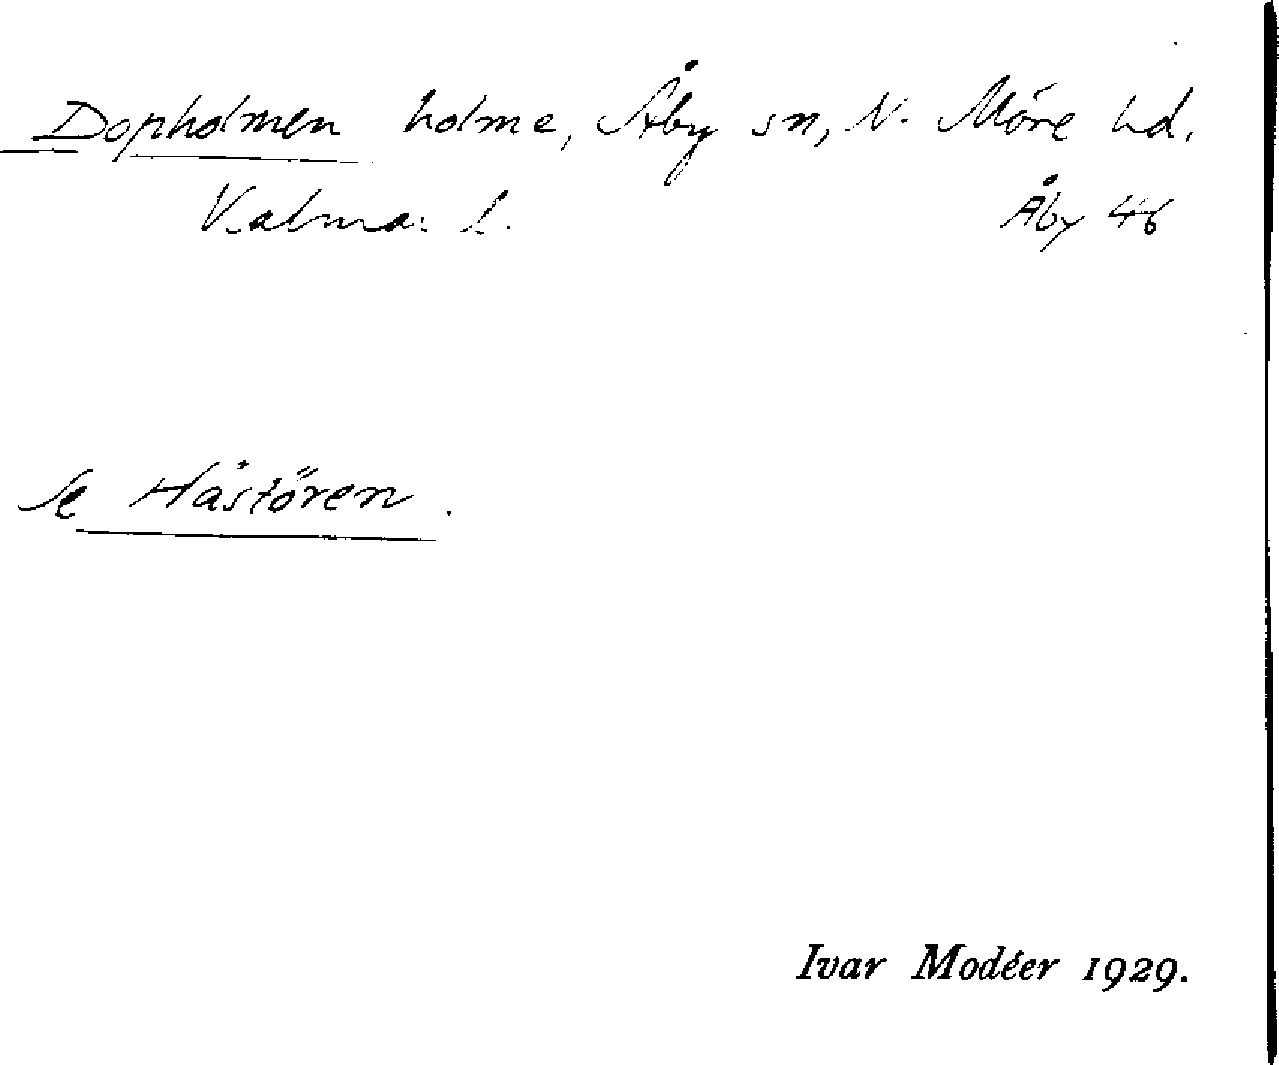 Dopholmen holme, Åby sn, N. Möre hd.
Kalmar l.
Åby 46
Se Håstören.
Ivar Modéer 1929.